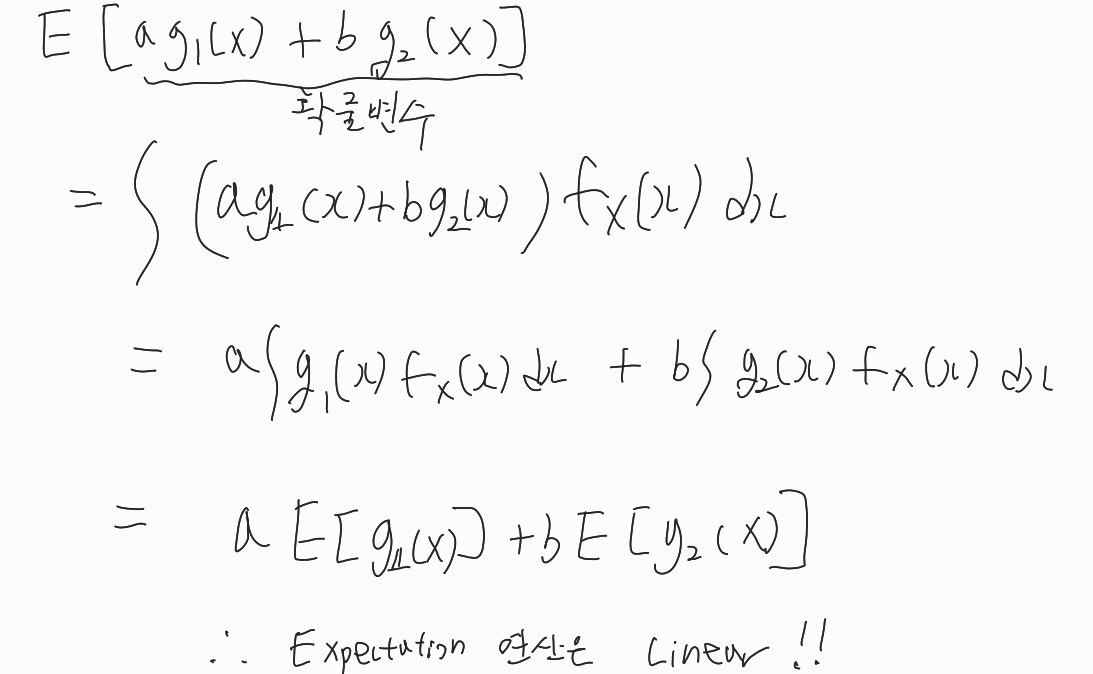 E [a g₁(X) + b g₂(X)]
확률변수
= ∫ (a g₁(x) + b g₂(x)) f_X(x) dx
= a ∫ g₁(x) f_X(x) dx + b ∫ g₂(x) f_X(x) dx
= a E [g₁(X)] + b E [y₂(X)]
∴ Expectation 연산은 Linear !!